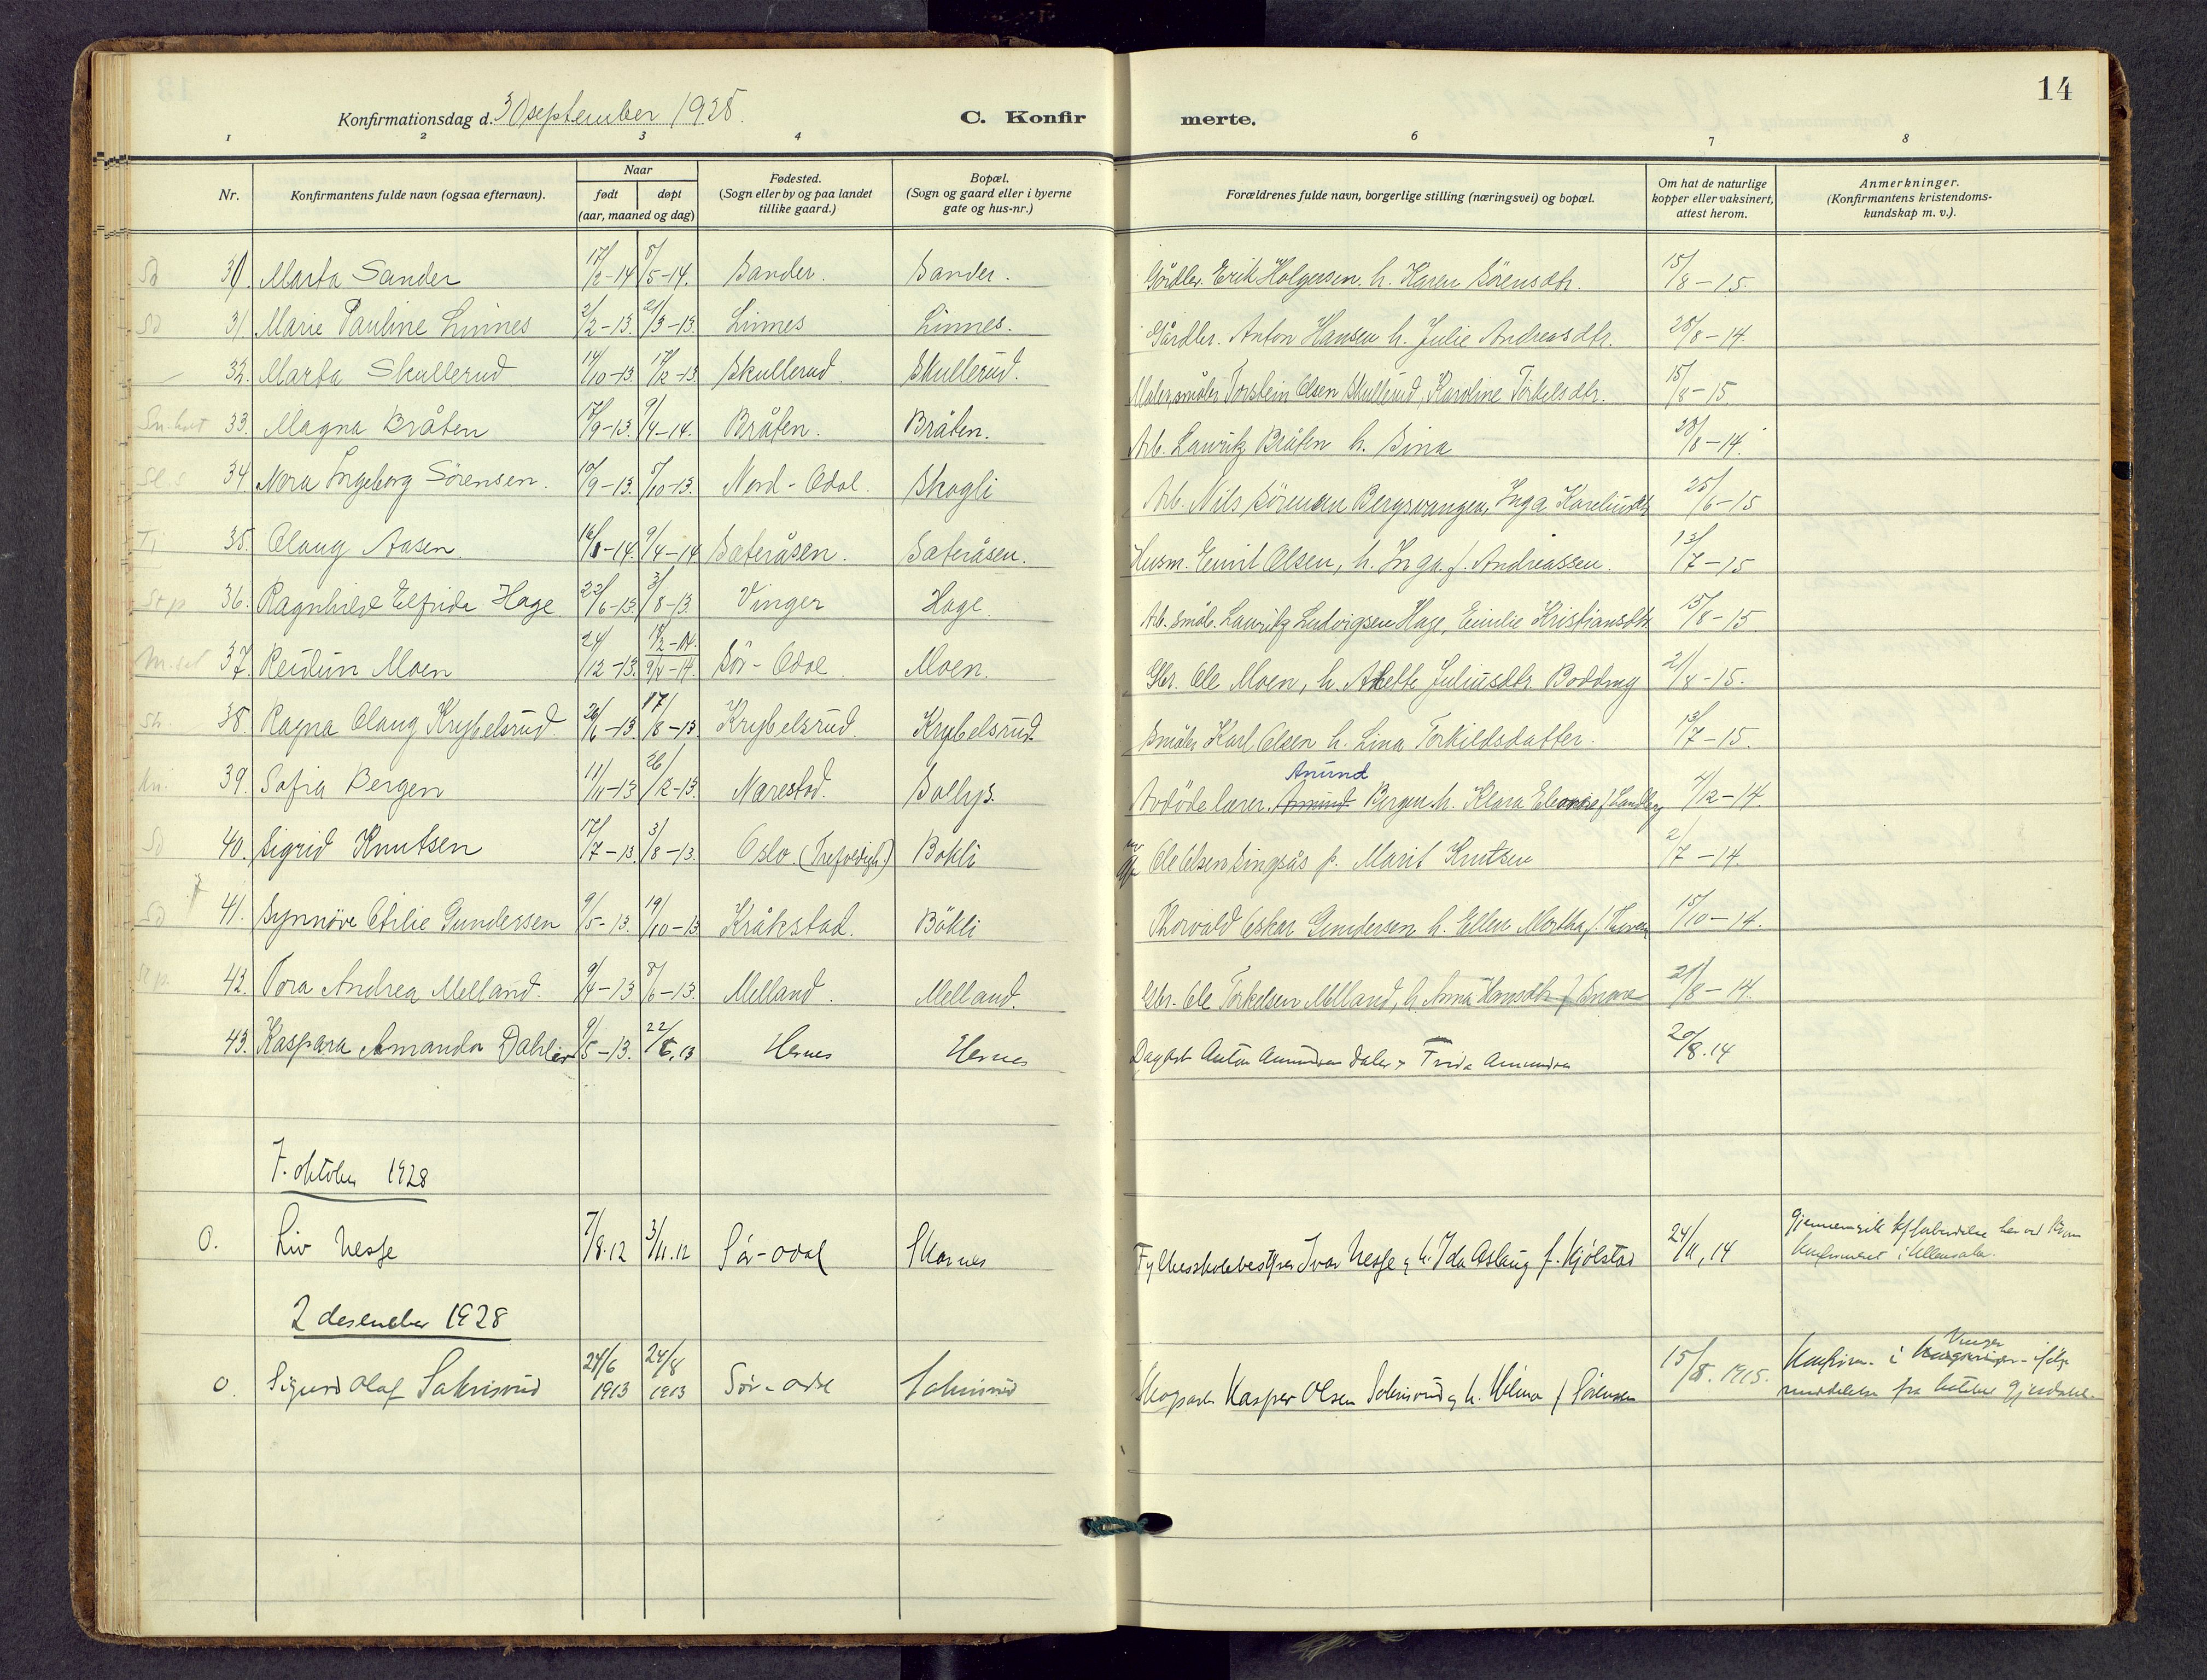 14
Konfirmationsdag d. 30 september 1928.
C. Konfirmerte.
1 2 3 4 6 7 8
Nr.
Konfirmantens fulde navn (ogsaa efternavn).
Naar
født døpt
(aar, maaned og dag)
Fødested.
(Sogn eller by og paa landet
tillike gaard.)
Bopæl.
(Sogn og gaard eller i byerne
gate og hus-nr.)
Forældrenes fulde navn, borgerlige stilling (næringsvei) og bopæl.
Om hat de naturlige
kopper eller vaksinert,
attest herom.
Anmerkninger.
(Konfirmantens kristendoms-
kundskap m. v.).
30. Marta Sander 17/2-14 8/5-14. Sander. Sander. Gårdbr. Erik Holgersen. h. Karen Sörensdtr. 15/8-15.
31. Marie Pauline Linnes 2/2-13. 21/3-13. Linnes Linnes. Gårdbr. Anton Hansen h. Julie Andreasdtr. 28/8-14.
32. Marta Skullerud 14/10-13. 17/12-13 Skullerud. Skullerud. Maler, småbr. Torstein Olsen Skullerud, Karoline Torkelsdtr. 15/8-15.
33. Magna Bråten 17/9-13. 9/4-14. Bråten. Bråten. Arb. Lauritz Bråten h. Sina 28/8-14.
34. Nora Ingeborg Sörensen. 10/9-13. 5/10-13. Nord-Odal. Skogli Arb. Nils Sörensen Bergsvangen, Inga Kareliusdtr 25/6-15
35. Olaug Aasen. 16/1-14. 9/4-14 Sæteråsen. Sæteråsen. Husm. Emil Olsen, h. Inga f. Andreassen. 13/7-15
36. Ragnhild Elfrida Hage 22/6-13. 3/8-13. Vinger Hage. Arb. småb. Lauritz Ludvigsen Hage, Emilie Kristiansdtr 15/8-15
37. Reidun Moen 24/12-13. 18/2-14. 9/4-14 Sör-Odal Moen. Gbr. Ole Moen, h. Anette Juliusdtr. Bodding 21/8-15.
38. Ragna Olaug Krybelsrud 26/6-13 17/8-13 Krybelsrud. Krybelsrud. Småbr. Karl Olsen h. Lina Torkildsdatter. 13/7-15.
39. Sofia Bergen 11/11-13 26/12-13. Narestad. Solhys. Avdöde lærer Anund Bergen h. Klara Eleonora f. Sandberg 4/12-14.
40. Sigrid Knutsen 17/7-13. 3/8-13. Oslo. (Trefoldigh.) Bökli Ole Olsen Singsås p. Marit Knutsen 2/7-14.
41. Synnöve Otilie Gundersen 9/5-13. 19/10-13 Kråkstad. Bökli Thorvald Oskar Gundersen h. Ellen Martha f. 15/10-14.
42. Tora Andrea Melland. 9/4-13 8/6-13. Melland. Melland. Gbr. Ole Torkelsen Melland, h. Anna Hansdtr f. 21/8-14.
43. Kaspara Amanda Dahler 9/5-13. 22/6.13 Hernes Hernes Dagarb Anton Amundsen Daler 20/8.14
7. oktober 1928
0. Liv Nesse 7/8.12 3/11.12 Sör-odal Skarnes Fylkesskolebestyrer Ivar Nesse & h. Ida Aslaug f. Kjölstad 24/11,14 konfirmeret i Ullensaker.
2 desember 1928
0. Sigurd Olaf Sakrisrud 24/6 1913 24/8 1913 Sör-odal Sakrisrud Skogsarb. Kasper Olsen Sakrisrud & h. Hilma f Sörensen 15/8.1915. Konfirm. i Vinger ifölge
meddelelse fra